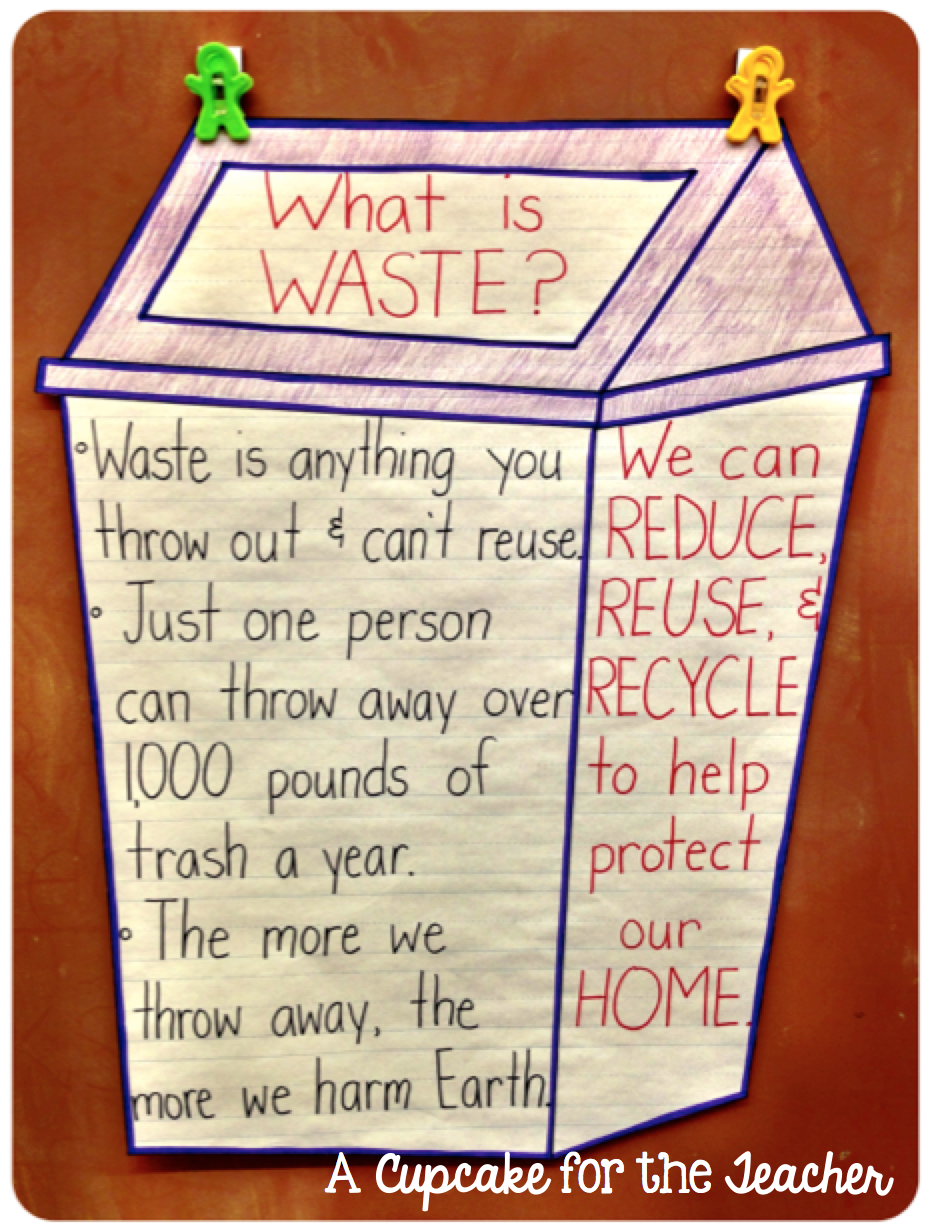 What is
WASTE?
Waste is anything you
throw out & can't reuse.
Just one person
can throw away over
1,000 pounds of
trash a year.
The more we
throw away, the
more we harm Earth.
We can
REDUCE,
REUSE, &
RECYCLE
to help
protect
our
HOME.
A Cupcake for the Teacher